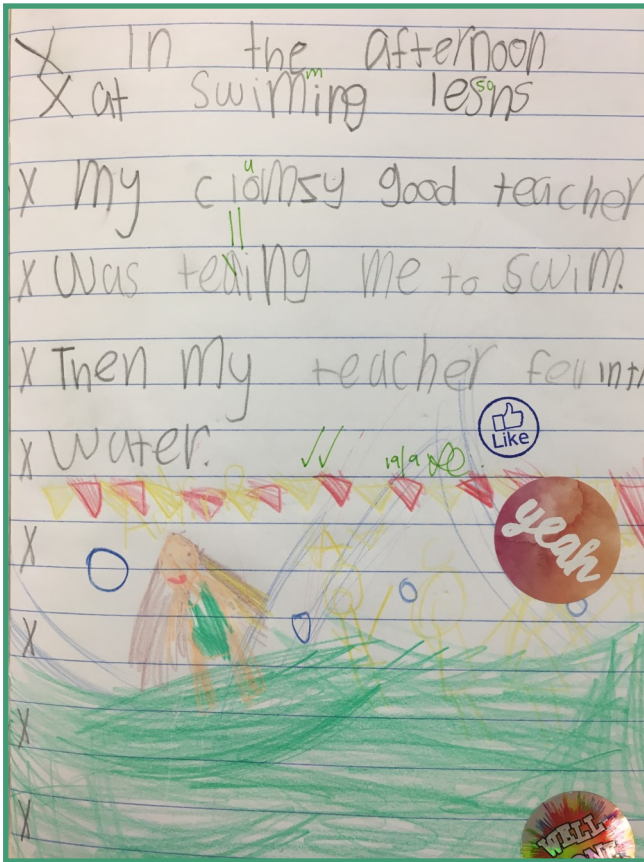 X In the afternoon
m
X at swiming lesns
so
u
X My clomsy good teacher
ll
X Was teaing me to swim.
X Then My teacher fell inth
X Water.
19/9
Like
yeah
X
X
X
X
WELL